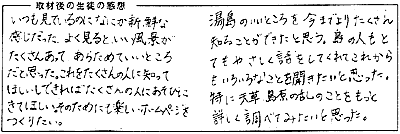 取材後の生徒の感想
いつも見ているのになにか新鮮な
感じだった。よく見るといい風景が
たくさんあって あらためていいところ
だと思った。これをたくさんの人に知って
ほしいしできればたくさんの人にあそびに
きてほしい。そのためにも楽しいホームページを
つくりたい。
湯島のいいところを今までよりたくさん
知ることができたと思う。島の人もと
てもやさしく話をしてくれてこれから
もいろいろなことを聞きたいと思った。
特に天草島原の乱のことをもっと
詳しく調べてみたいと思った。